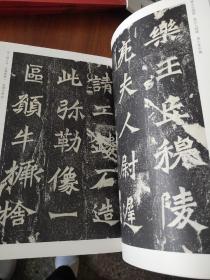 樂王丘穆陵
亮夫人尉遲
請工鏤石造
此弥勒像一
區願牛橛捨